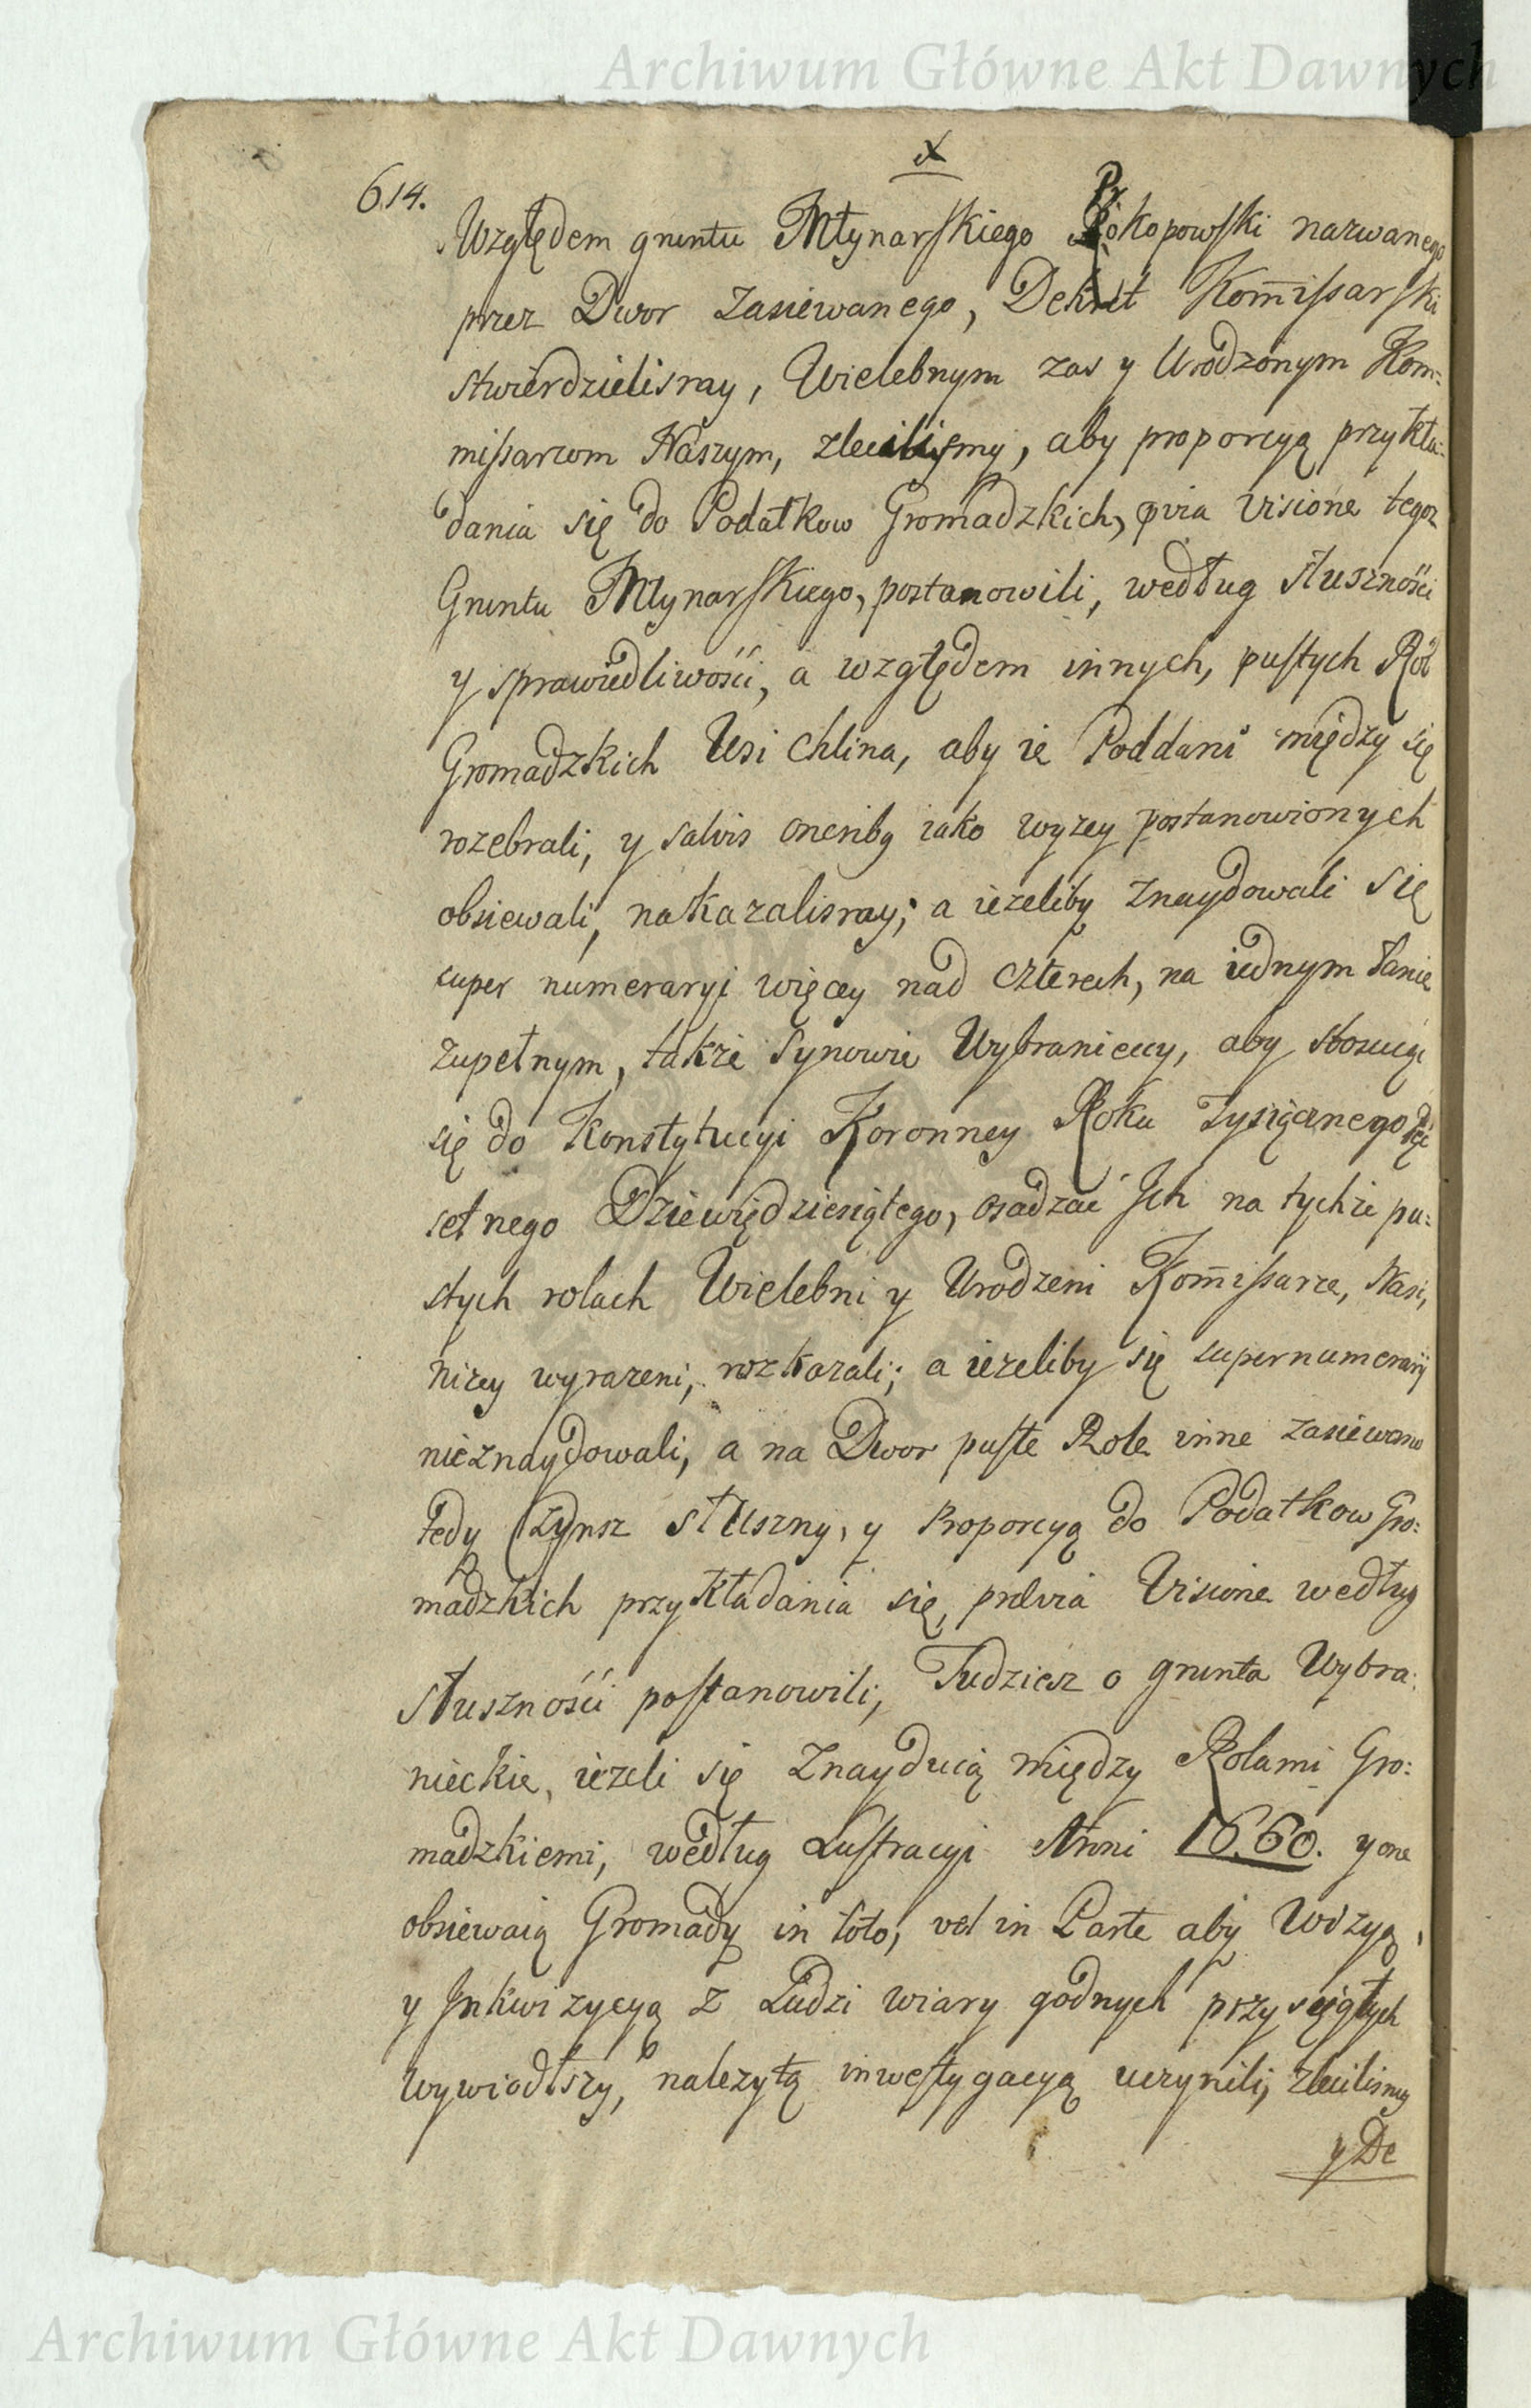 Archiwum Główne Akt Dawnych
x
614.
Względem gruntu Młynarskiego Prokopowski nazwanego
przez Dwor zasiewanego, Dekret Kom̄issarski
stwierdzielismy, Wielebnym zas y Urodzonym Kom=
missarzom Naszym, zlecilismy, aby proporcyą przykła=
dania się do Podatkow Gromadzkich, pvia visione tegoz
Gruntu Młynarskiego, postanowili, według słuszności
y sprawiedliwości, a względem innych, pustych Rol
Gromadzkich Wsi Chlina, aby ie Poddani między się
rozebrali, y salvis oneribq iako wyzey postanowionych
obsiewali, nakazalismy; a iezeliby znaydowali się
super numeraryi więcey nad czterech, na iednym łanie
zupełnym, także Synowie Wybranieccy, aby stosuiąc
się do Konstytucyi Koronney Roku Tysiącnego Sze
setnego Dziewiędziesiątego, osadzać Ich na tychże pu=
stych rolach Wielebni y Urodzeni Kom̄issarze, Nasi,
nizey wyrazeni, rozkazali; a iezeliby się supernumeraryi
nieznaydowali, a na Dwor puste Role inne zasiewano
tedy Czynsz słuszny, y Proporcyą do Podatkow Gro=
madzkich przykładania się, prævia Visione według
słuszności postanowili, Tudziesz o grunta Wybra=
nieckie, iezeli się znayduią między Rolami Gro=
madzkiemi, według Lustracyi Anni 1660. y one
obsiewaią Gromady in toto, vel in Parte aby Wizyą,
y Inkwizycyą z Ludzi wiary godnych przysięgłych
wywiodłszy, nalezytą inwestygacyą uczynili, zlecilismy
y De
Archiwum Główne Akt Dawnych